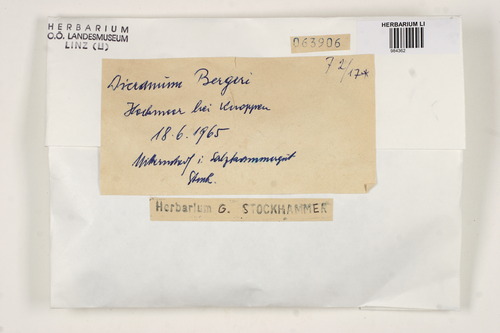 HERBARIUM
O.Ö. LANDESMUSEUM
LINZ (LI)
HERBARIUM LI
384362
063906
72/17*
Dicranum Bergeri
Hochmoor bei Knoppen
18.6.1965
i. Salzkammergut
Stmk.
Herbarium G. STOCKHAMMER